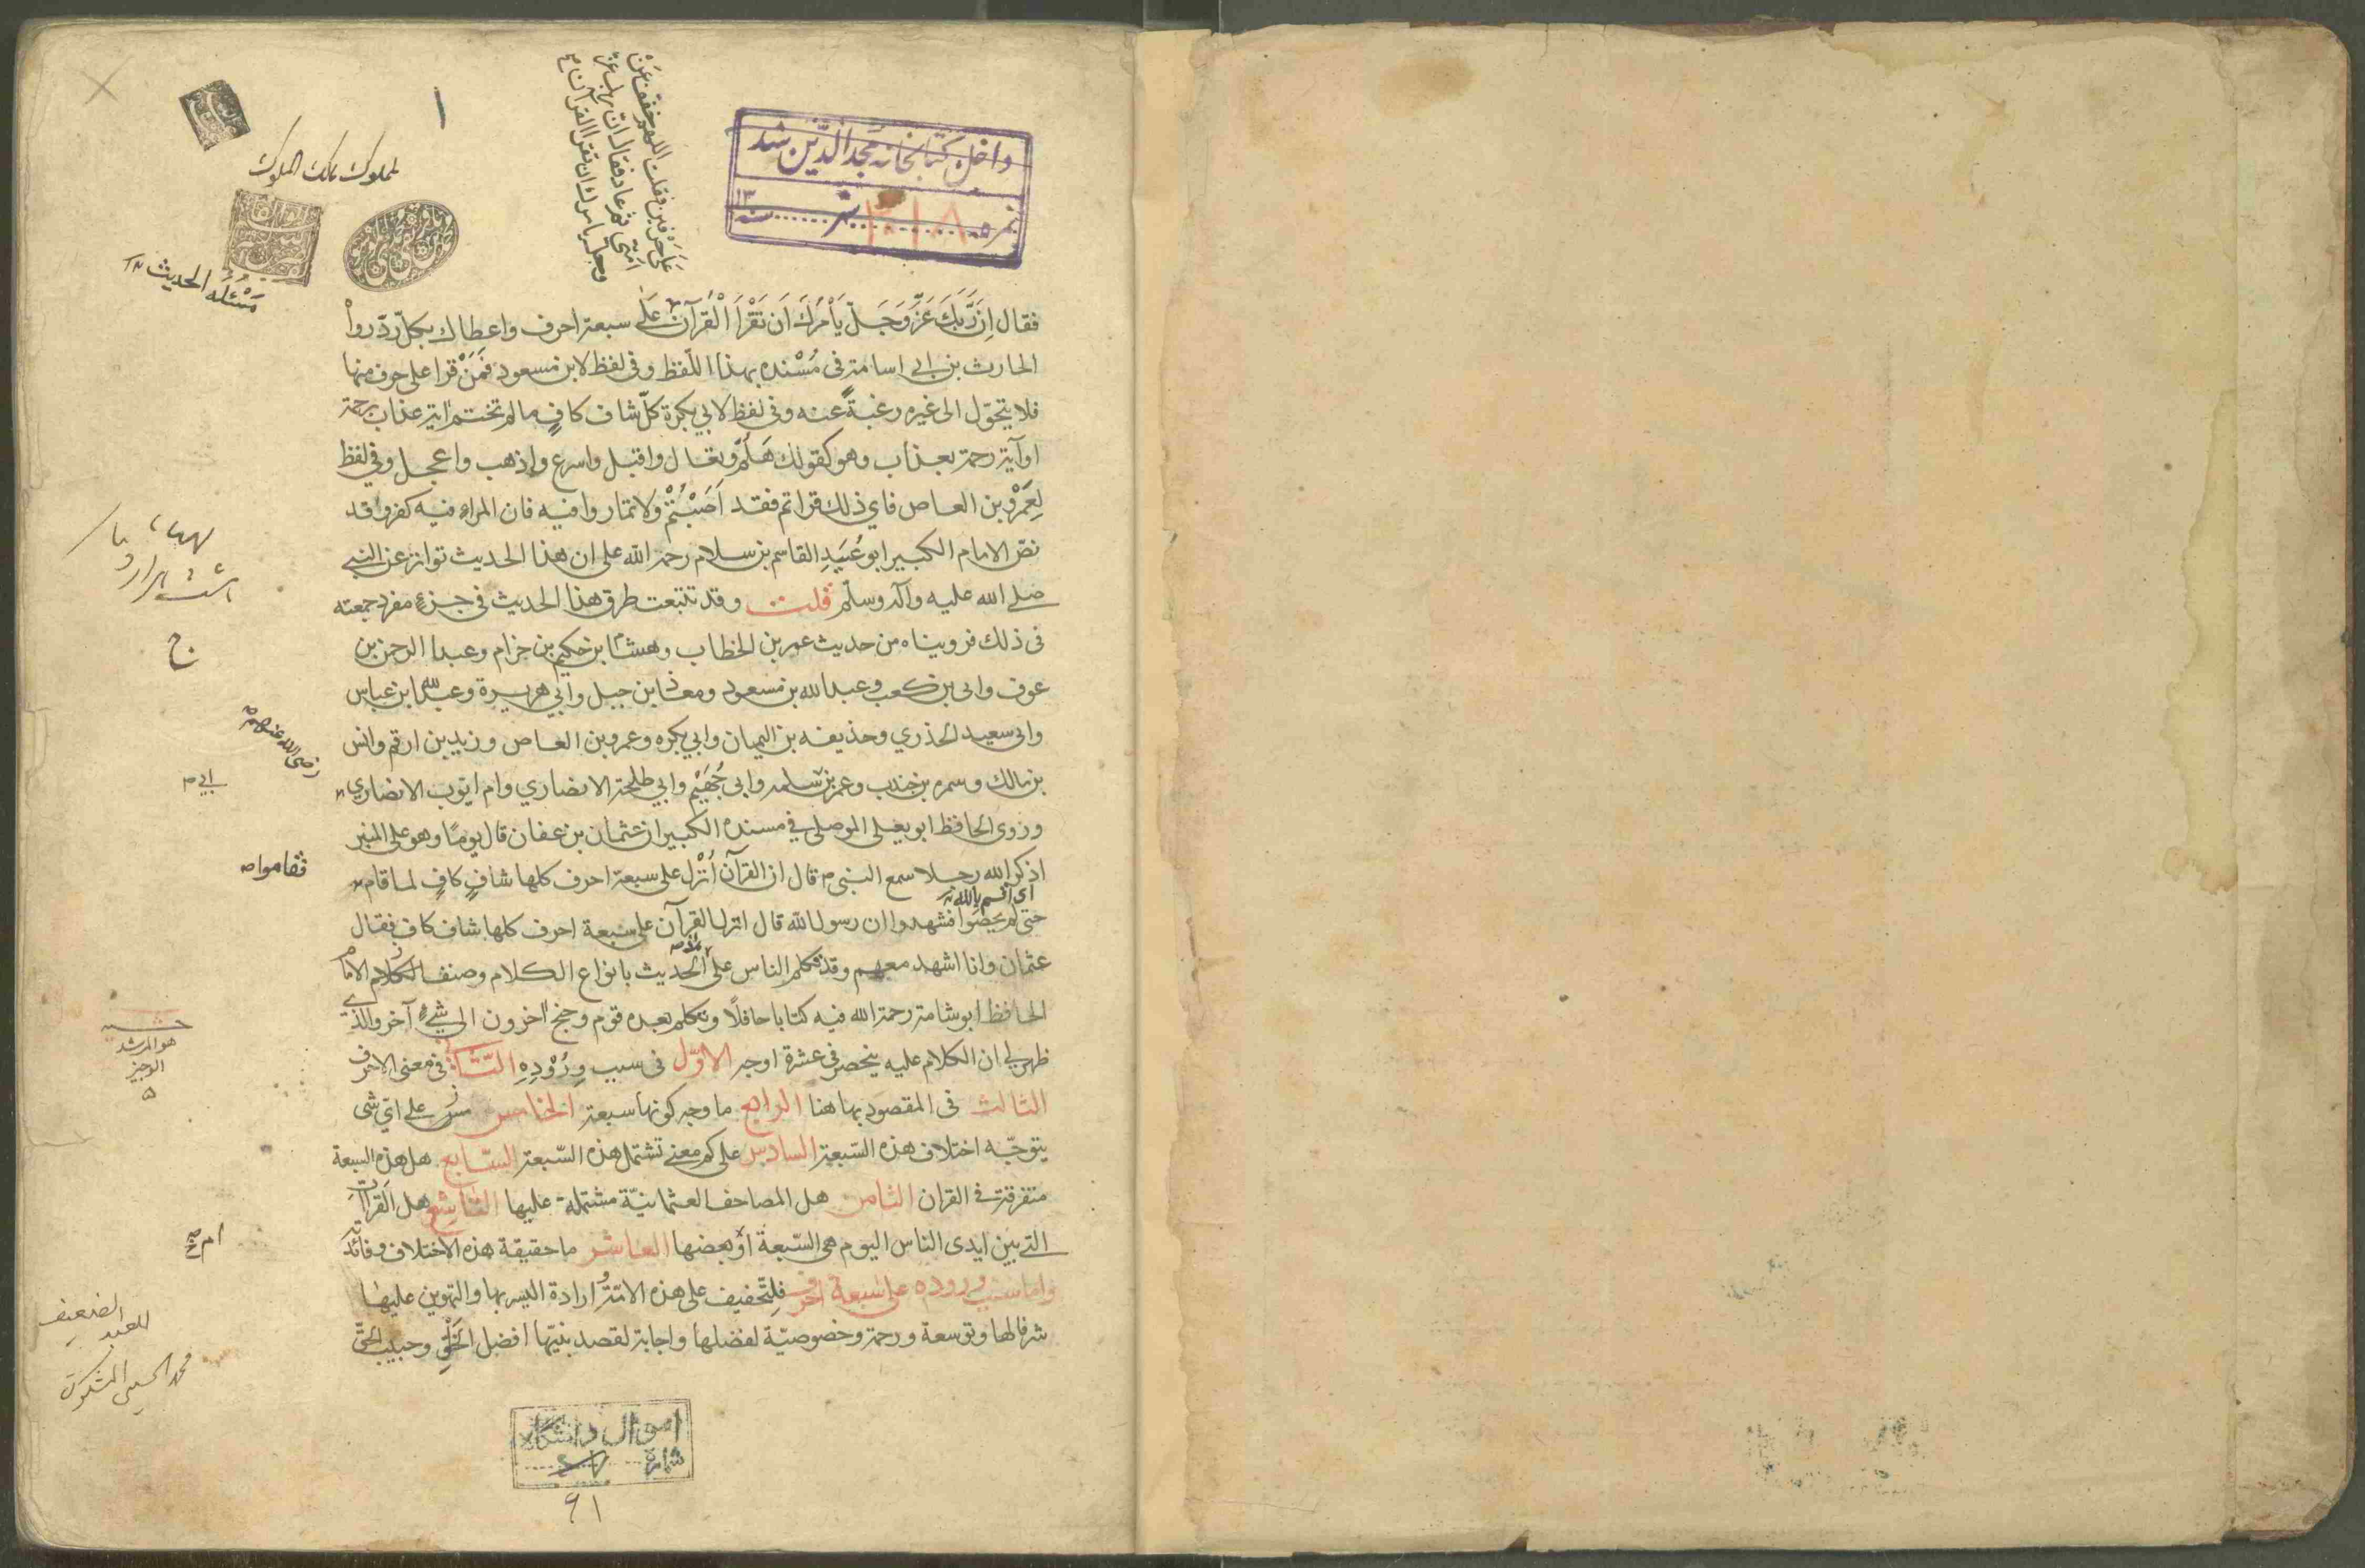 داخل کتابخانه مجد الدّین شد
نمره ۳۱۸ سنه ۱۳
۱
على حرف فقلت اللهم خفف عن
امتي ثم عاد فقال ان ربك عز
وجل يامرك ان تقرا القرآن
مملوك مالك الملوك
مسئلة الحديث
فقال اِنَّ رَبَّكَ عَزَّ وَجَلَّ يَأْمُرُكَ اَن تَقْرَأَ الْقُرآنَ عَلَى سبعة احرف واعطاك بكلّ ردّ رواْ
الحارث بن ابي اسامة في مُسْنده بهذا اللّفظ وفي لفظ لابن مسعود فَمَنْ قرا على حرف منها
فلا يتحوّل الى غيره رغبةً عنه وفي لفظ لابي بكرة كلّ شاف كافٍ ما لم تختم اية عذاب برحمة
او آية رحمة بعذاب وهو كقولك هَلُمَّ وتعال واقبل واسرع واذهب واعجل وفي لفظ
لِعَمْرو بن العاص فاي ذلك قراتم فقد اَصَبْتُمْ ولا تماروا فيه فان المراء فيه كفر وقد
نصّ الامام الكبير ابو عُبَيدِ القاسم بن سلام رحمه الله على ان هذا الحديث تواتر عن النبي
صلى الله عليه وآله وسلّم قلت وقد تتبعت طرق هذا الحديث في جزءٍ مفرد جمعته
في ذلك فرويناه من حديث عمر بن الخطاب وهشام بن حكيم بن حزام وعبد الرحمن بن
عوف وابي بن كعب وعبد الله بن مسعود ومعاذ بن جبل وابي هريرة وعبد الله ابن عباس
وابي سعيد الخدري وحذيفه بن اليمان وابي بكره وعمرو بن العاص وزيد بن ارقم وانس
بن مالك وسمره بن جندب وعمر بن سلمه وابي جُهَيْم وابي طلحة الانصاري وام ايّوب الانصاري
رضي الله عنهم
ابي
وروى الحافظ ابو يعلى الموصلي في مسنده الكبير ان عثمان بن عفان قال يومًا وهو على المنبر
اذكر الله رجلا سمع النبي قال ان القرآن اُنْزل على سبعة احرف كلها شافٍ كافٍ لما قام
فقاموا
اى اقسم بالله
حتى لم يحصَوا فشهدوا ان رسول الله قال انزل القرآن على سبعة احرف كلها شاف كاف فقال
عثمان وانا اشهد معهم وقد تكلم الناس على هذا الحديث بانواع الكلام وصنف الامام
الحافظ ابو شامة رحمه الله فيه كتابا حافلًا وتكلم بعده قوم وجنح آخرون الى شيءٍ آخر والذي
هو المرشد
الوجيز
ظهر لي ان الكلام عليه ينحصر في عشرة اوجه الاوّل في سبب وِرُوْدِهِ الثّاني في معنى الاحرف
الثالث في المقصود بها هنا الرابع ما وجه كونها سبعة الخامس على ايّ شي
يتوجّه اختلاف هذه السّبعة السادس على كم معنى تشتمل هذه السّبعة السّابع هل هذه السبعة
متفرقة في القران الثامن هل المصاحف العثمانيّة مشتملة عليها التاسع هل القرات
التي بين ايدى الناس اليوم هي السّبعة اَو بعضها العاشر ما حقيقة هذه الاختلاف وفائدته
ام
واما سبب وروده على سبعة احرف فلِتّخفيف على هذه الامّة وارادة اليسر بها والتهوين عليها
شرفا لها وتوسعة ورحمة وخصوصيّة لفضلها واجابة لقصد نبيّها افضل الخَلْقِ وحبيب الحقّ
العبد الضعيف
محمد الحسيني المشكوة
اموال دانشگاه
شماره
۶۱